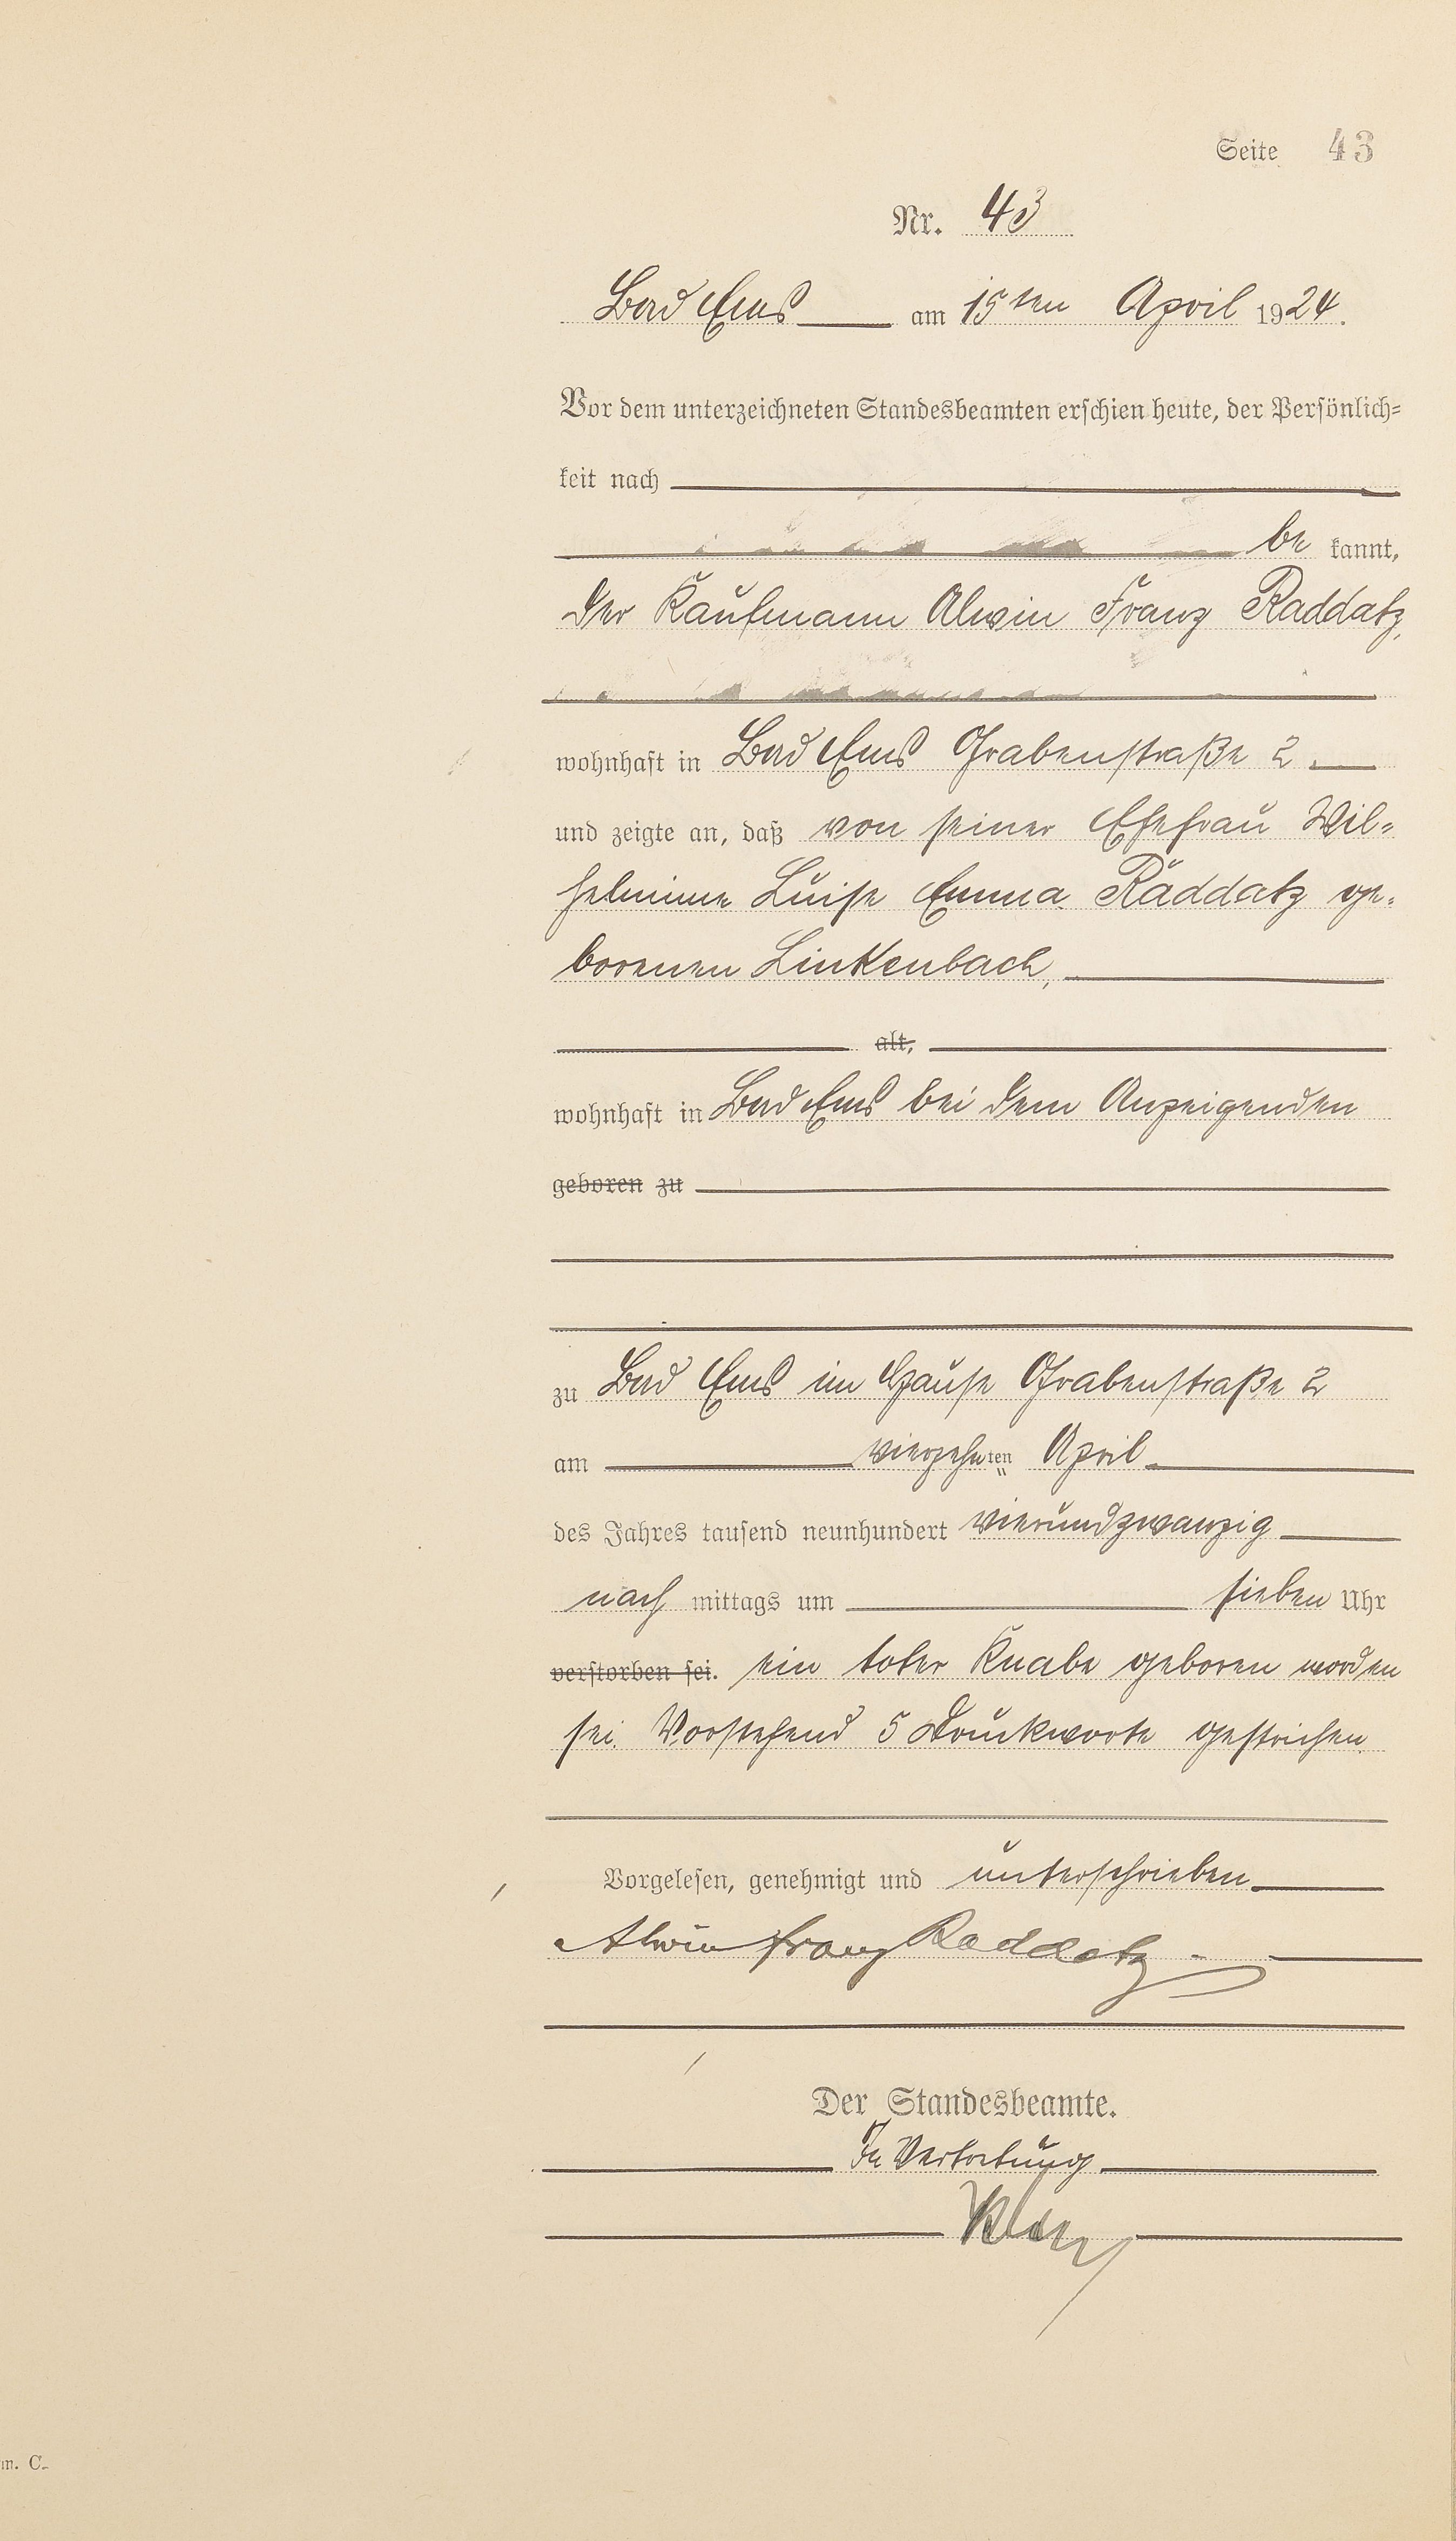 Seite 43
Nr. 43
Bad Ems am 15ten April 1924.
Vor dem unterzeichneten Standesbeamten erschien heute, der Persönlich=
keit nach
be kannt,
der Kaufmann Alwin Franz Raddatz,
wohnhaft in Bad Ems Grabenstraße 2
und zeigte an, daß von seiner Ehefrau Wil=
helmine Luise Emma Raddatz ge=
borenen Linkenbach,
alt,
wohnhaft in Bad Ems bei dem Anzeigenden
geboren zu
zu Bad Ems im Hause Grabenstraße 2
am vierzehnten April
des Jahres tausend neunhundert vierundzwanzig
nach mittags um sieben Uhr
verstorben sei. ein toter Knabe geboren worden
sei. Vorstehend 5 Druckworte gestrichen.
Vorgelesen, genehmigt und unterschrieben
Alwin Franz Raddatz
Der Standesbeamte.
In Vertretung
m. C.